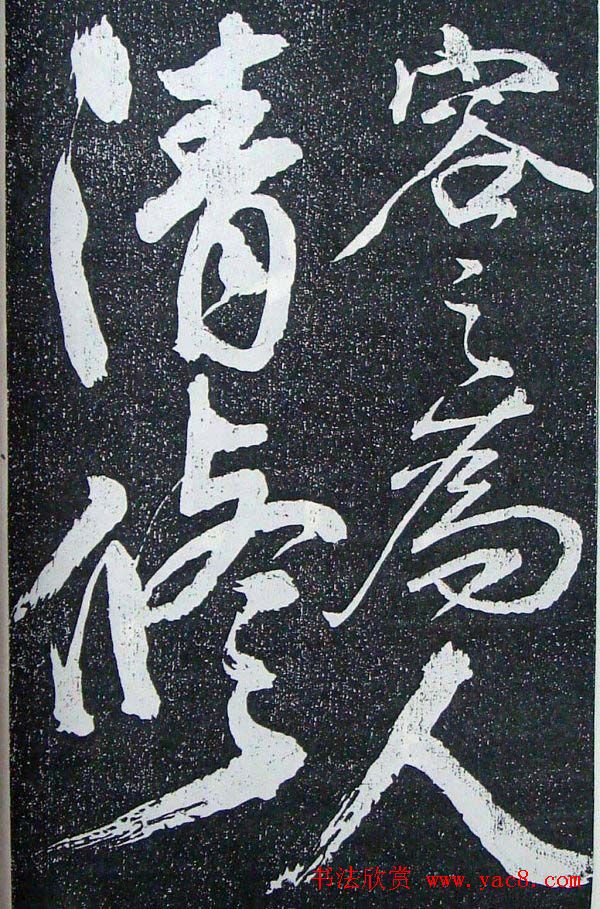 容之为人
清修
书法欣赏 www.yac8.com